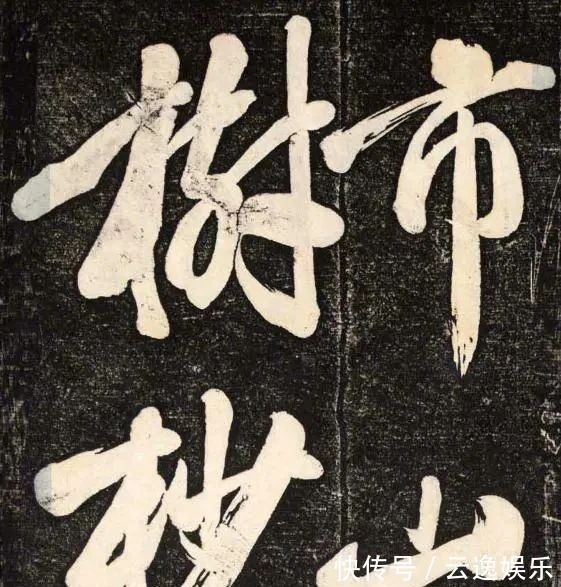 市
樹杪
快传号 / 云逸娱乐